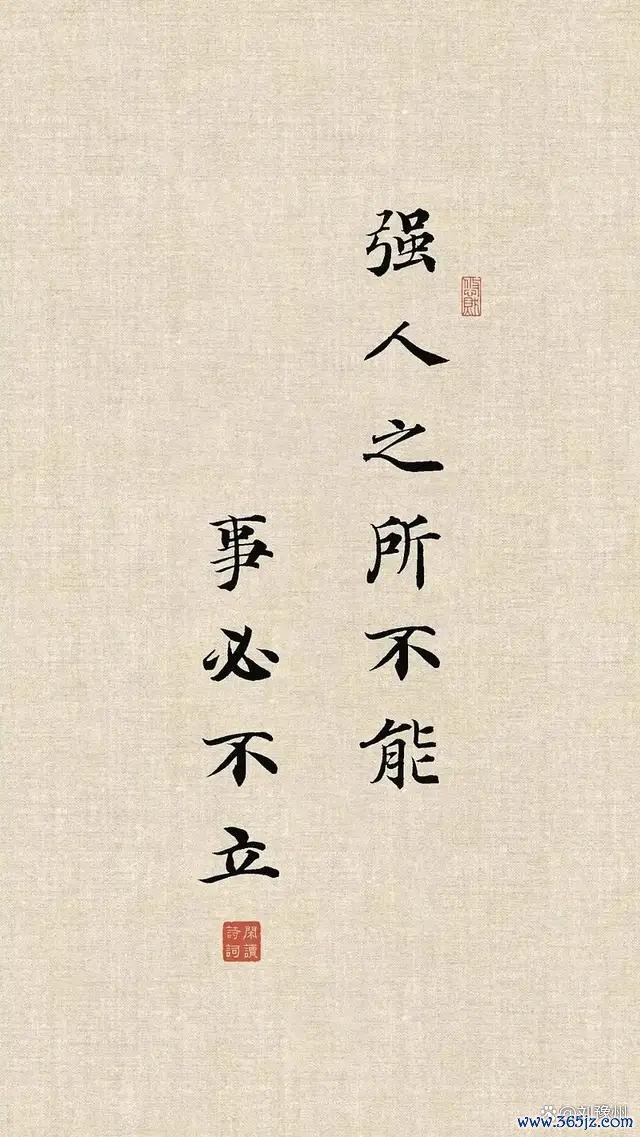 强人之所不能
事必不立
閑讀
詩詞
@刘豫州
www.365jz.com